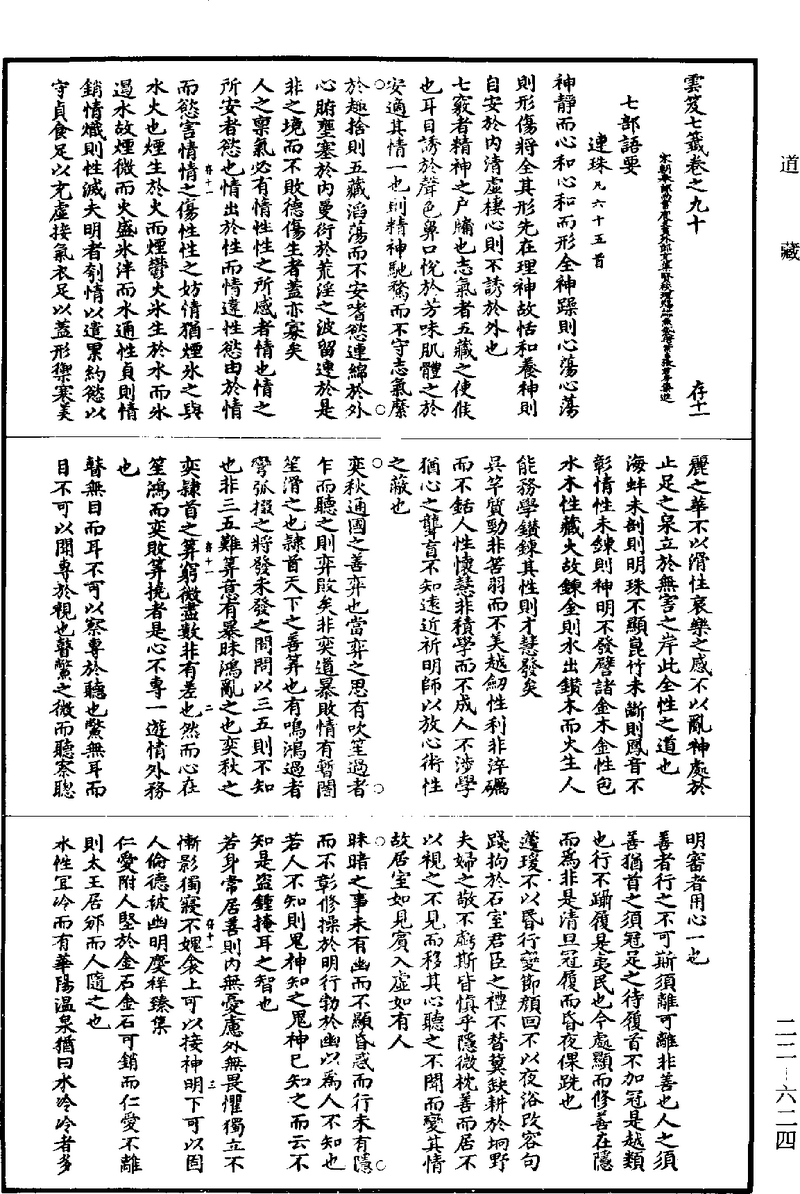 道藏
雲笈七籤卷之九十
存十一
七部語要
連珠凡六十五首
神靜而心和心和而形全神躁則心蕩心蕩
則形傷將全其形先在理神故恬和養神則
自安於內清虛棲心則不誘於外也
七竅者精神之戶牖也志氣者五藏之使候
也耳目誘於聲色鼻口悅於芳味肌體之於
安適其情一也則精神馳騖而不守志氣縻
於趣捨則五藏滔蕩而不安嗜慾連綿於外
心腑壅塞於內曼衍於荒淫之波留連於是
非之境而不敗德傷生者蓋亦寡矣
人之稟氣必有情性性之所感者情也情之
所安者慾也情出於性而情違性慾由於情
而慾害情情之傷性性之妨情猶煙氷之與
水火也煙生於火而煙鬱火氷生於水而氷
遏水故煙微而火盛氷泮而水通性貞則情
銷情熾則性滅夫明者刳情以遣累約慾以
守貞食足以充虛接氣衣足以蓋形禦寒美
麗之華不以滑性哀樂之感不以亂神處於
止足之泉立於無害之岸此全性之道也
海蚌未剖則明珠不顯崑竹未斷則鳳音不
彰情性未鍊則神明不發譬諸金木金性包
水木性藏火故鍊金則水出鑽木而火生人
能務學鑽鍊其性則才慧發矣
吳竿質勁非筈羽而不美越劒性利非淬礪
而不銛人性懷慧非積學而不成人不涉學
猶心之聾盲不知遠近祈明師以放心術性
之蔽也
奕秋通國之善弈也當弈之思有吹笙過者
乍而聽之則弈敗矣非奕道暴敗情有暫闇
笙滑之也隸首天下之善筭也有鳴鴻過者
彎弧掇之將發未發之間問以三五則不知
也非三五難筭意有暴昧鴻亂之也奕秋之
奕隸首之筭窮微盡數非有差也然而心在
笙鴻而奕敗筭撓者是心不專一遊情外務
也
瞽無目而耳不可以察專於聽也鱉無耳而
目不可以聞專於視也瞽鱉之微而聽察聰
明審者用心一也
善者行之不可斯須離可離非善也人之須
善猶首之須冠足之待履首不加冠是越類
也行不躡履是夷民也今處顯而修善在隱
而為非是清旦冠履而昏夜倮跣也
蘧瑗不以昏行變節顏回不以夜浴改容句
踐拘於石室君臣之禮不替冀缺耕於坰野
夫婦之敬不虧斯皆慎乎隱微枕善而居不
以視之不見而移其心聽之不聞而變其情
故居室如見賓入虛如有人
昧暗之事未有幽而不顯昏惑而行未有隱
而不彰修操於明行勃於幽以為人不知也
若人不知則鬼神知之鬼神已知之而云不
知是盜鍾掩耳之智也
若身常居善則內無憂慮外無畏懼獨立不
慚影獨寢不媿衾上可以接神明下可以固
人倫德被幽明慶祥臻集
仁愛附人堅於金石金石可銷而仁愛不離
則太王居邠而人隨之也
水性宜冷而有華陽溫泉猶曰水冷冷者多
二二—六二四